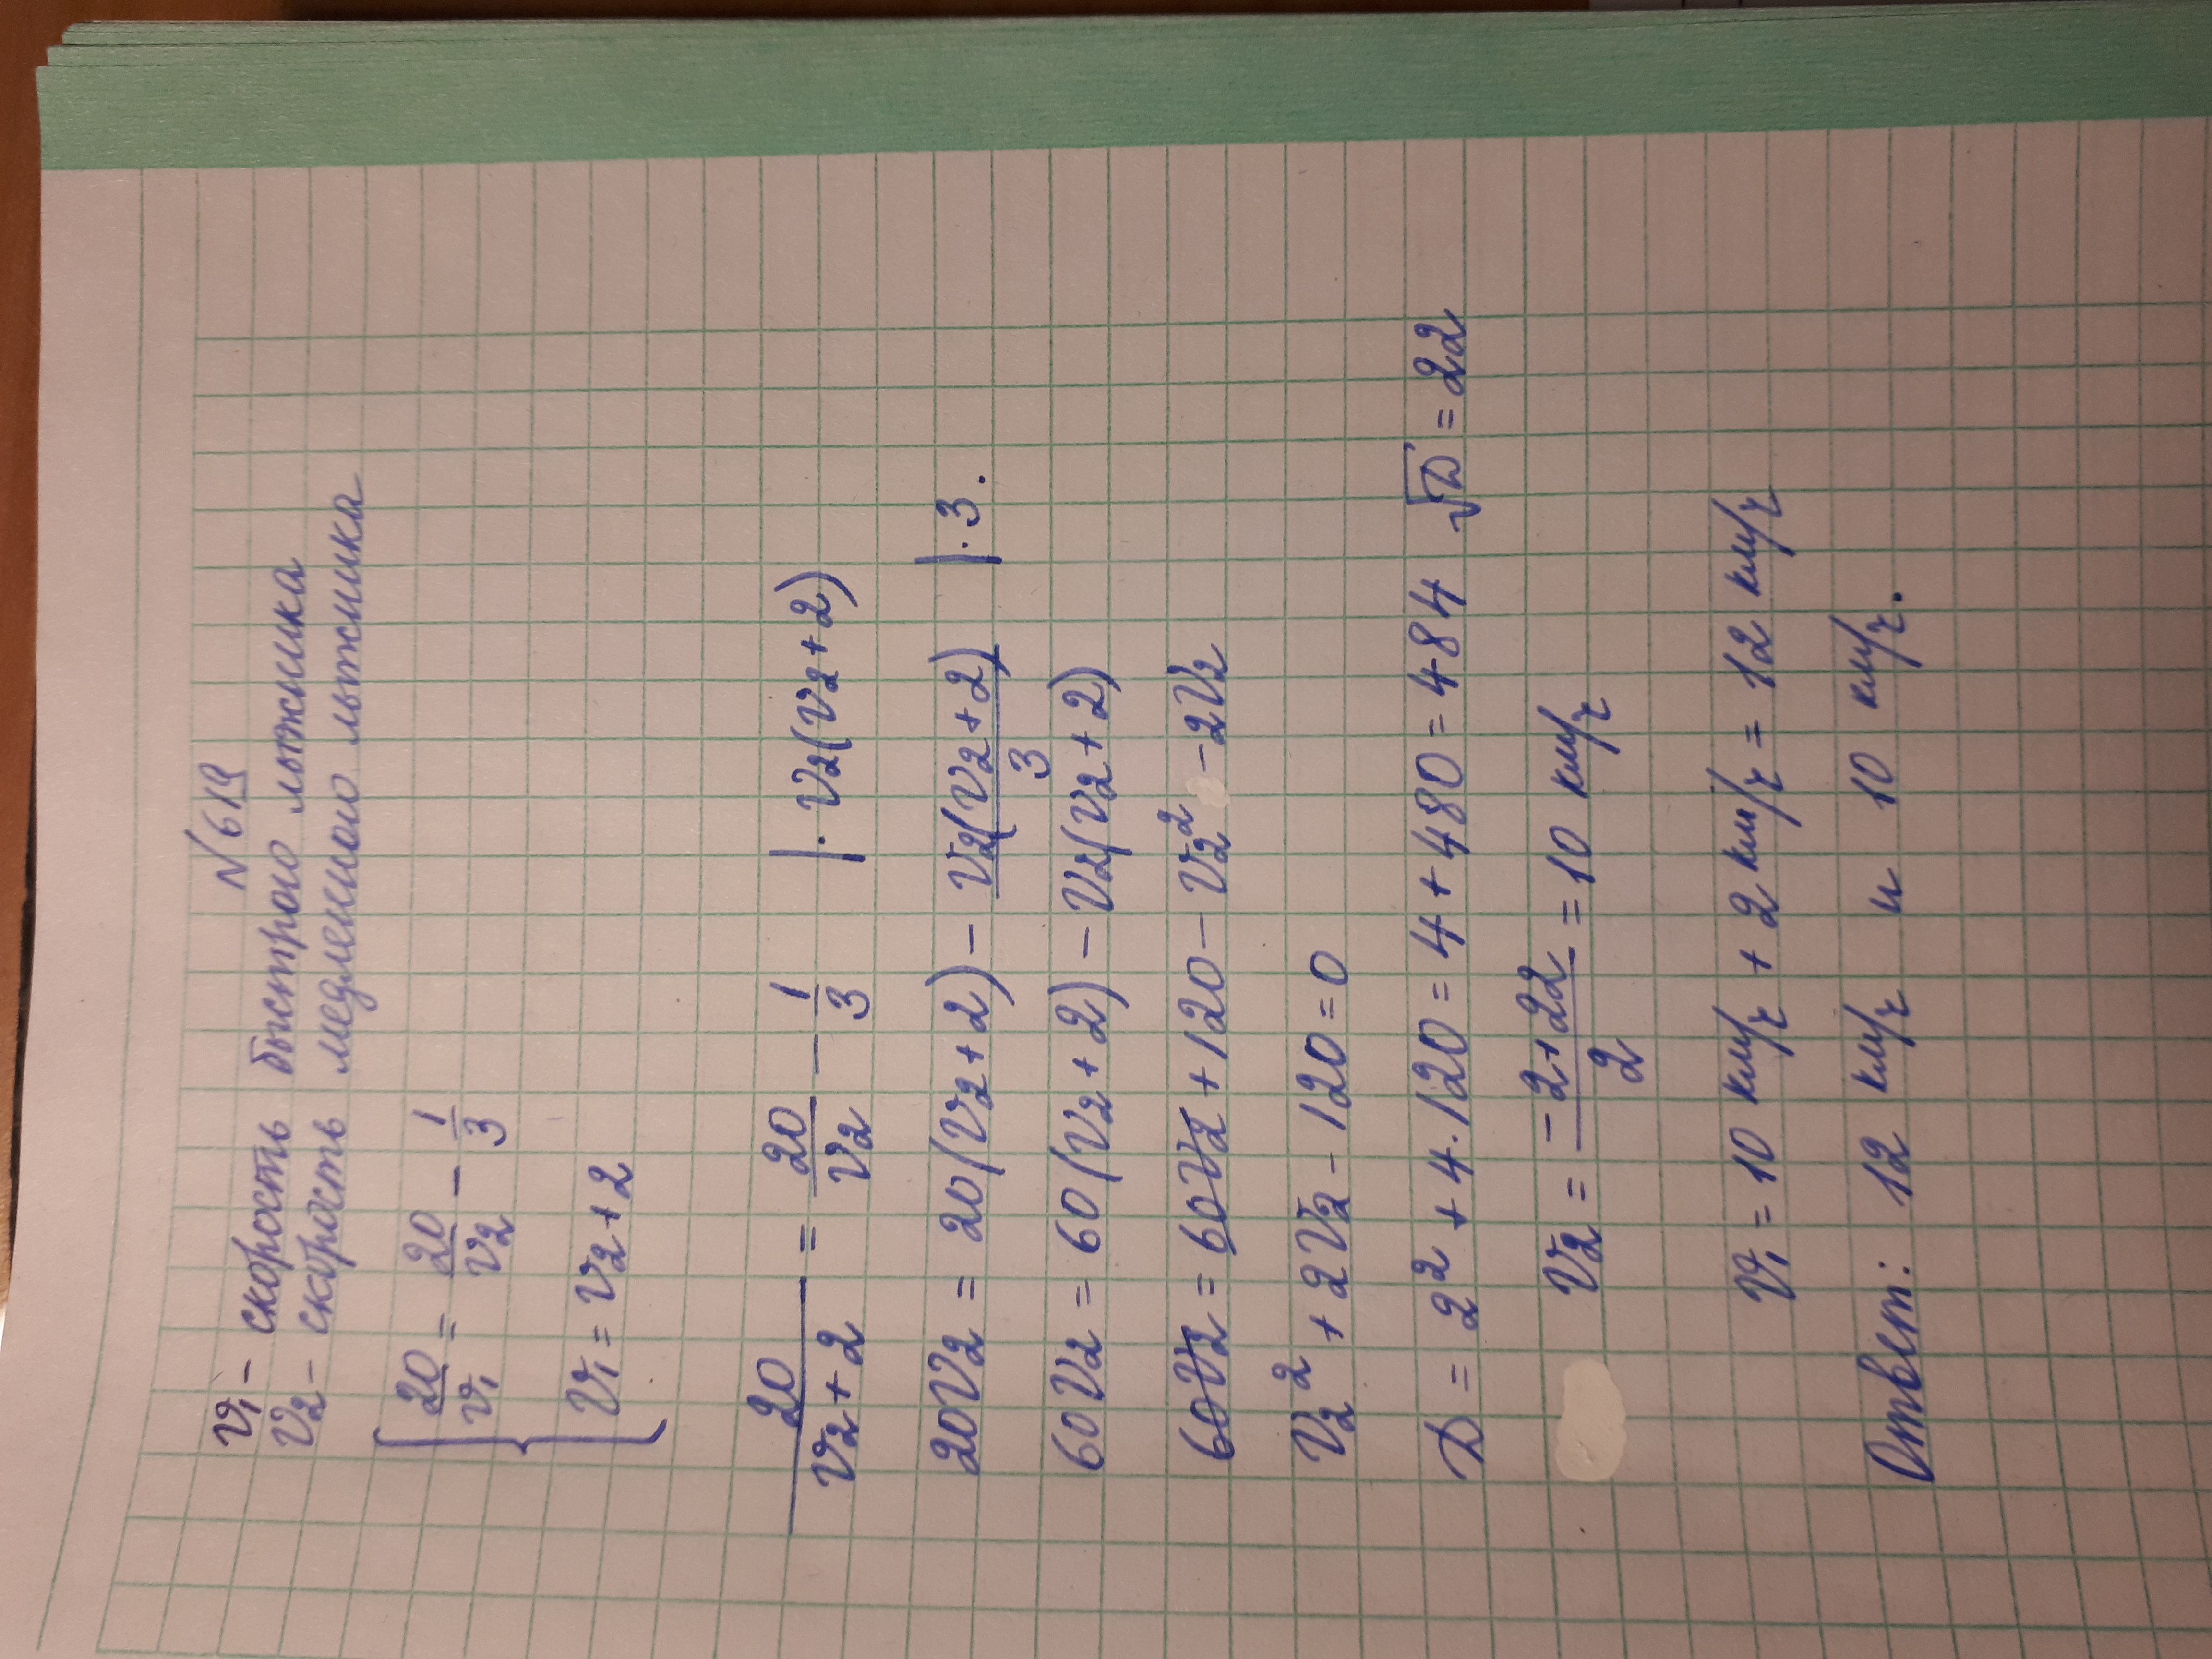 N 619
V₁ - скорость быстрого лыжника
V₂ - скорость медленного лыжника
{ 20/V₁ = 20/V₂ - 1/3
V₁ = V₂ + 2
20/(V₂ + 2) = 20/V₂ - 1/3 | · V₂(V₂ + 2)
20V₂ = 20(V₂ + 2) - V₂(V₂ + 2)/3 | · 3.
60V₂ = 60(V₂ + 2) - V₂(V₂ + 2)
60V₂ = 60V₂ + 120 - V₂² - 2V₂
V₂² + 2V₂ - 120 = 0
D = 2² + 4 · 120 = 4 + 480 = 484 √D = 22
V₂ = (-2 + 22)/2 = 10 км/ч
V₁ = 10 км/ч + 2 км/ч = 12 км/ч
Ответ: 12 км/ч и 10 км/ч.